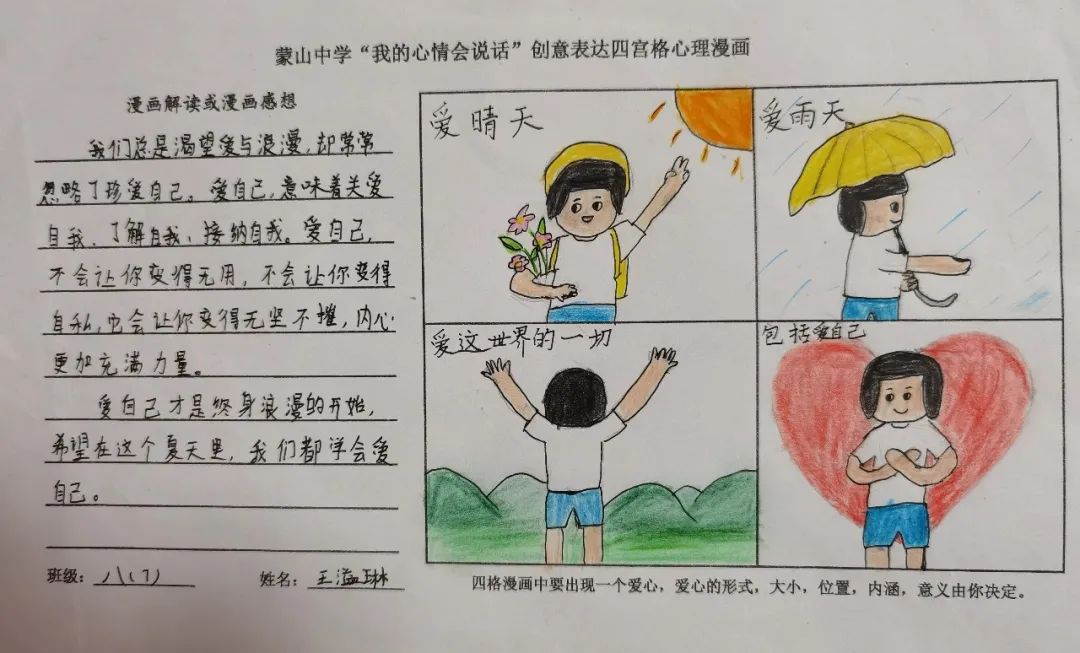 蒙山中学“我的心情会说话”创意表达四宫格心理漫画
漫画解读或漫画感想
我们总是渴望爱与浪漫,却常常
忽略了珍爱自己。爱自己,意味着关爱
自我、了解自我、接纳自我。爱自己,
不会让你变得无用,不会让你变得
自私,也会让你变得无坚不摧,内心
更加充满力量。
爱自己才是终身浪漫的开始,
希望在这个夏天里,我们都学会爱
自己。
班级:八(7)
姓名:王溢琳
爱晴天
爱雨天
爱这世界的一切
包括爱自己
四格漫画中要出现一个爱心,爱心的形式,大小,位置,内涵,意义由你决定。